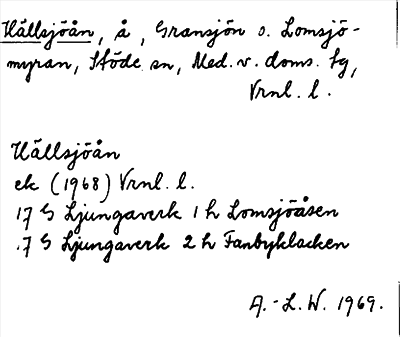 Hällsjöån, å, Gransjön o. Lomsjö-
myran, Stöde sn, Med. v. doms. tg,
Vrnl. l.
Hällsjöån
ek (1968) Vrnl. l.
17 G Ljungaverk 1 h Lomsjöåsen
17 G Ljungaverk 2 h Fanbyklacken
A.-L. W. 1969.